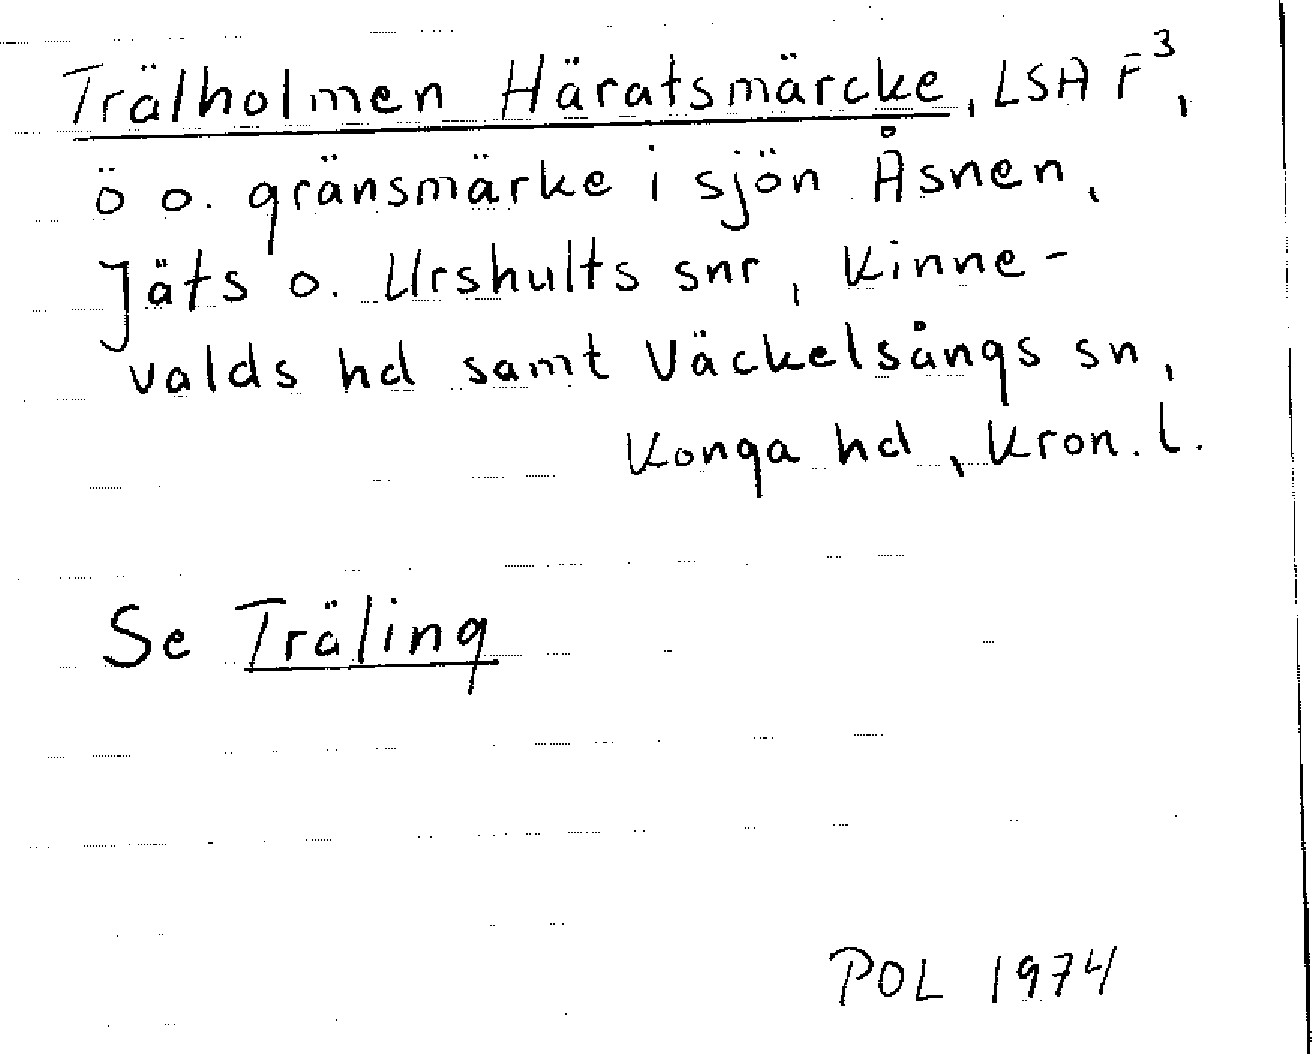 Trälholmen Häratsmärcke, LSA F³,
ö o. gränsmärke i sjön Åsnen,
Jäts o. Urshults snr, Kinne-
valds hd samt Väckelsångs sn,
Konga hd, Kron. l.
Se Träling
POL 1974